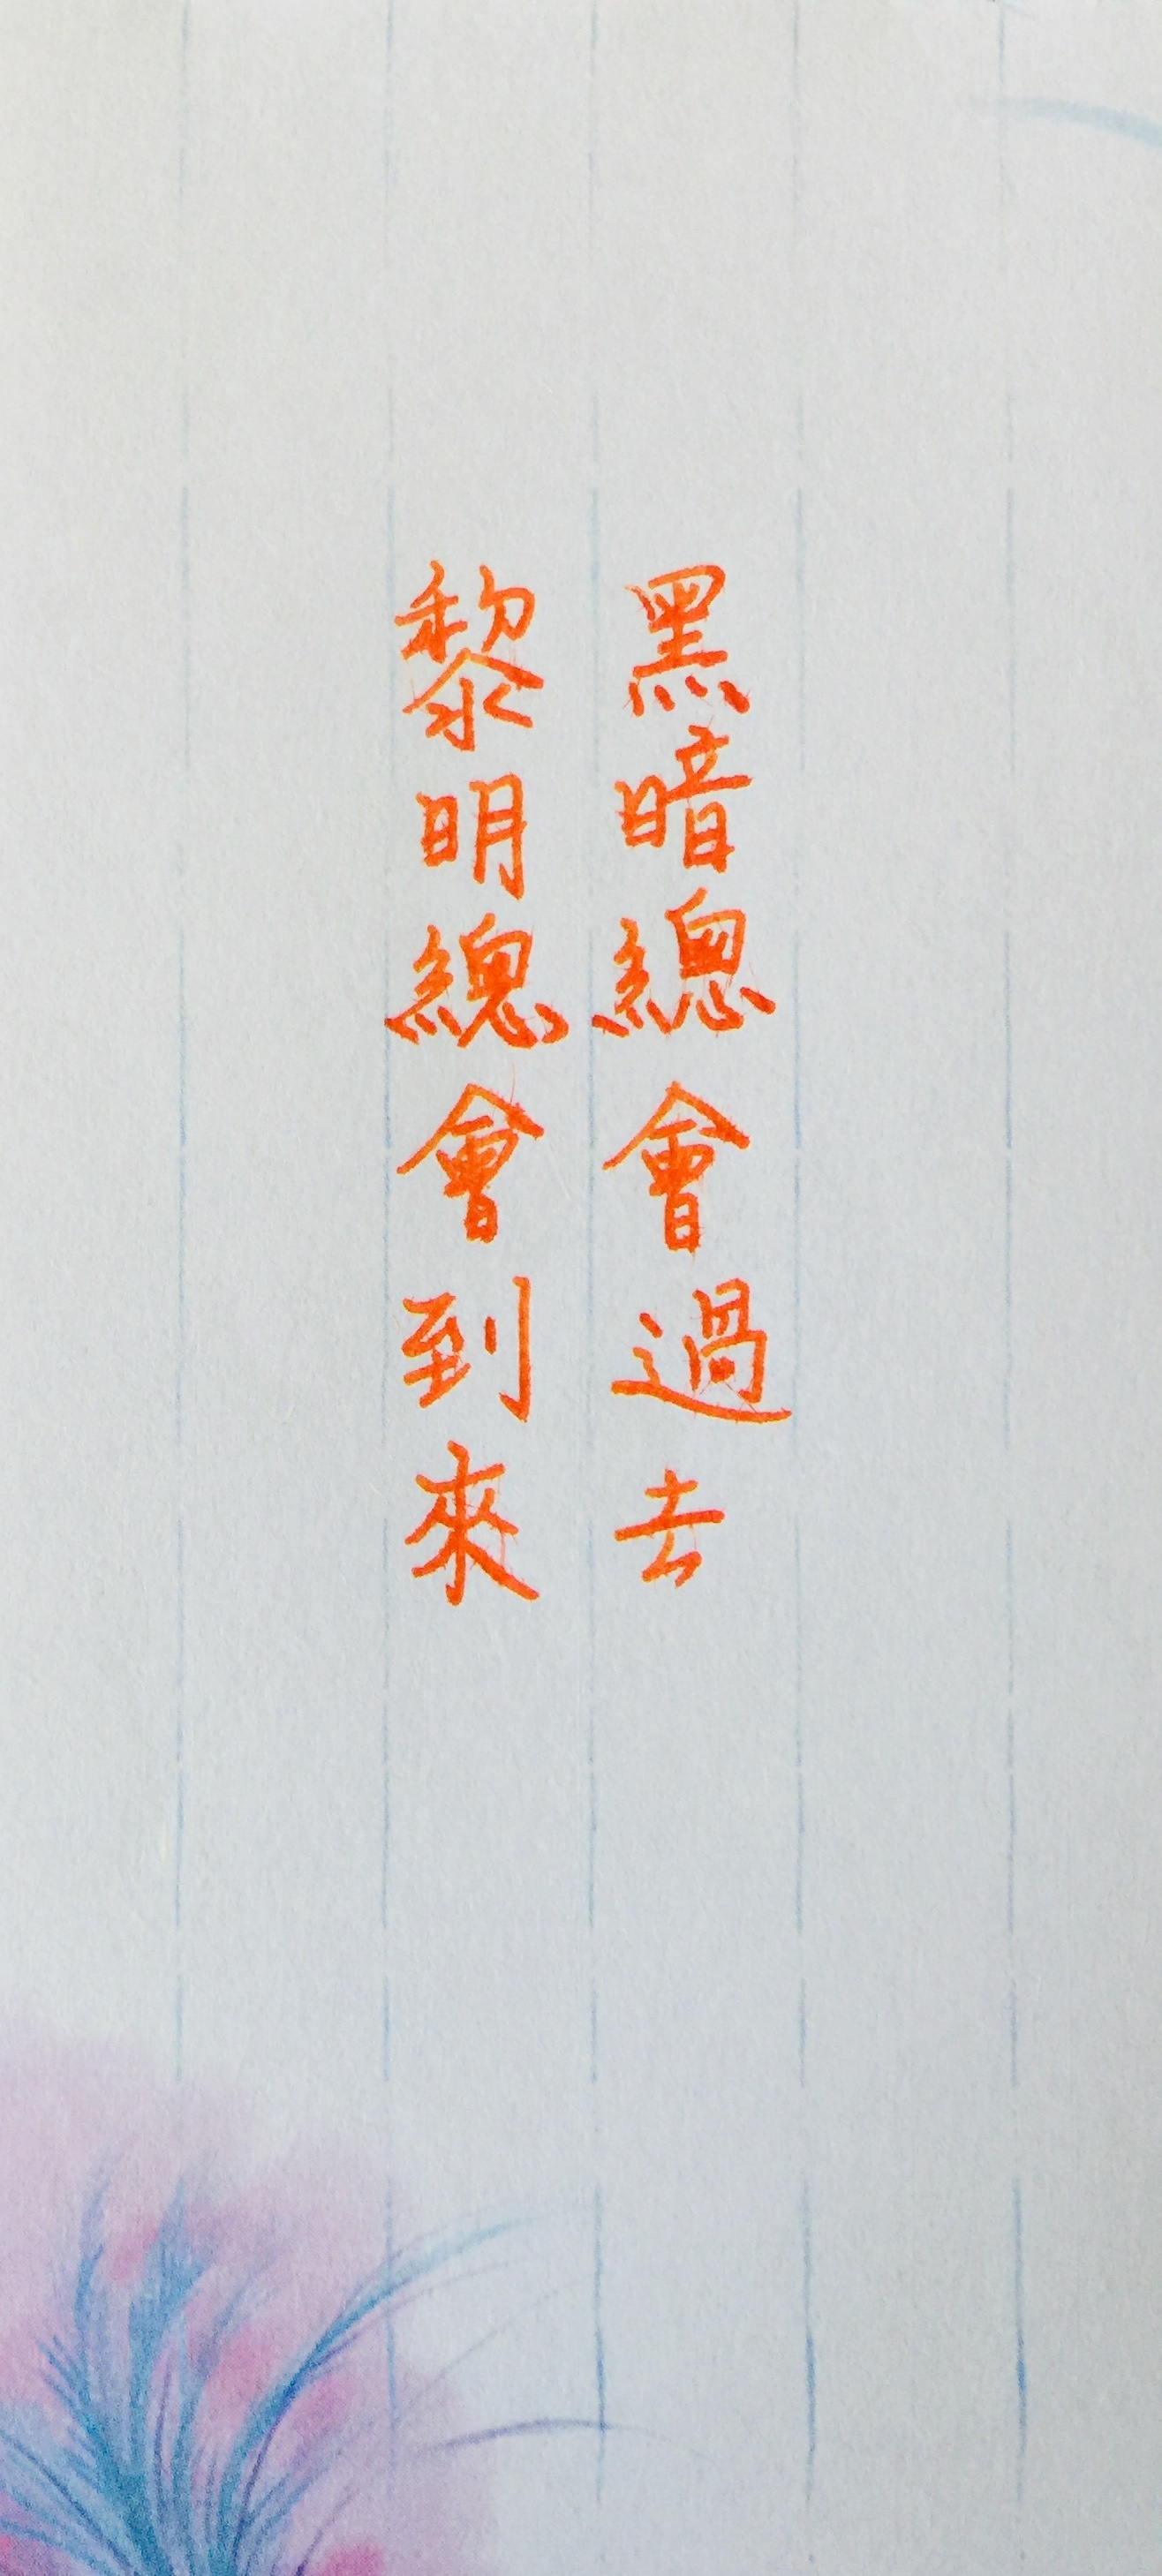 黑暗總會過去
黎明總會到來